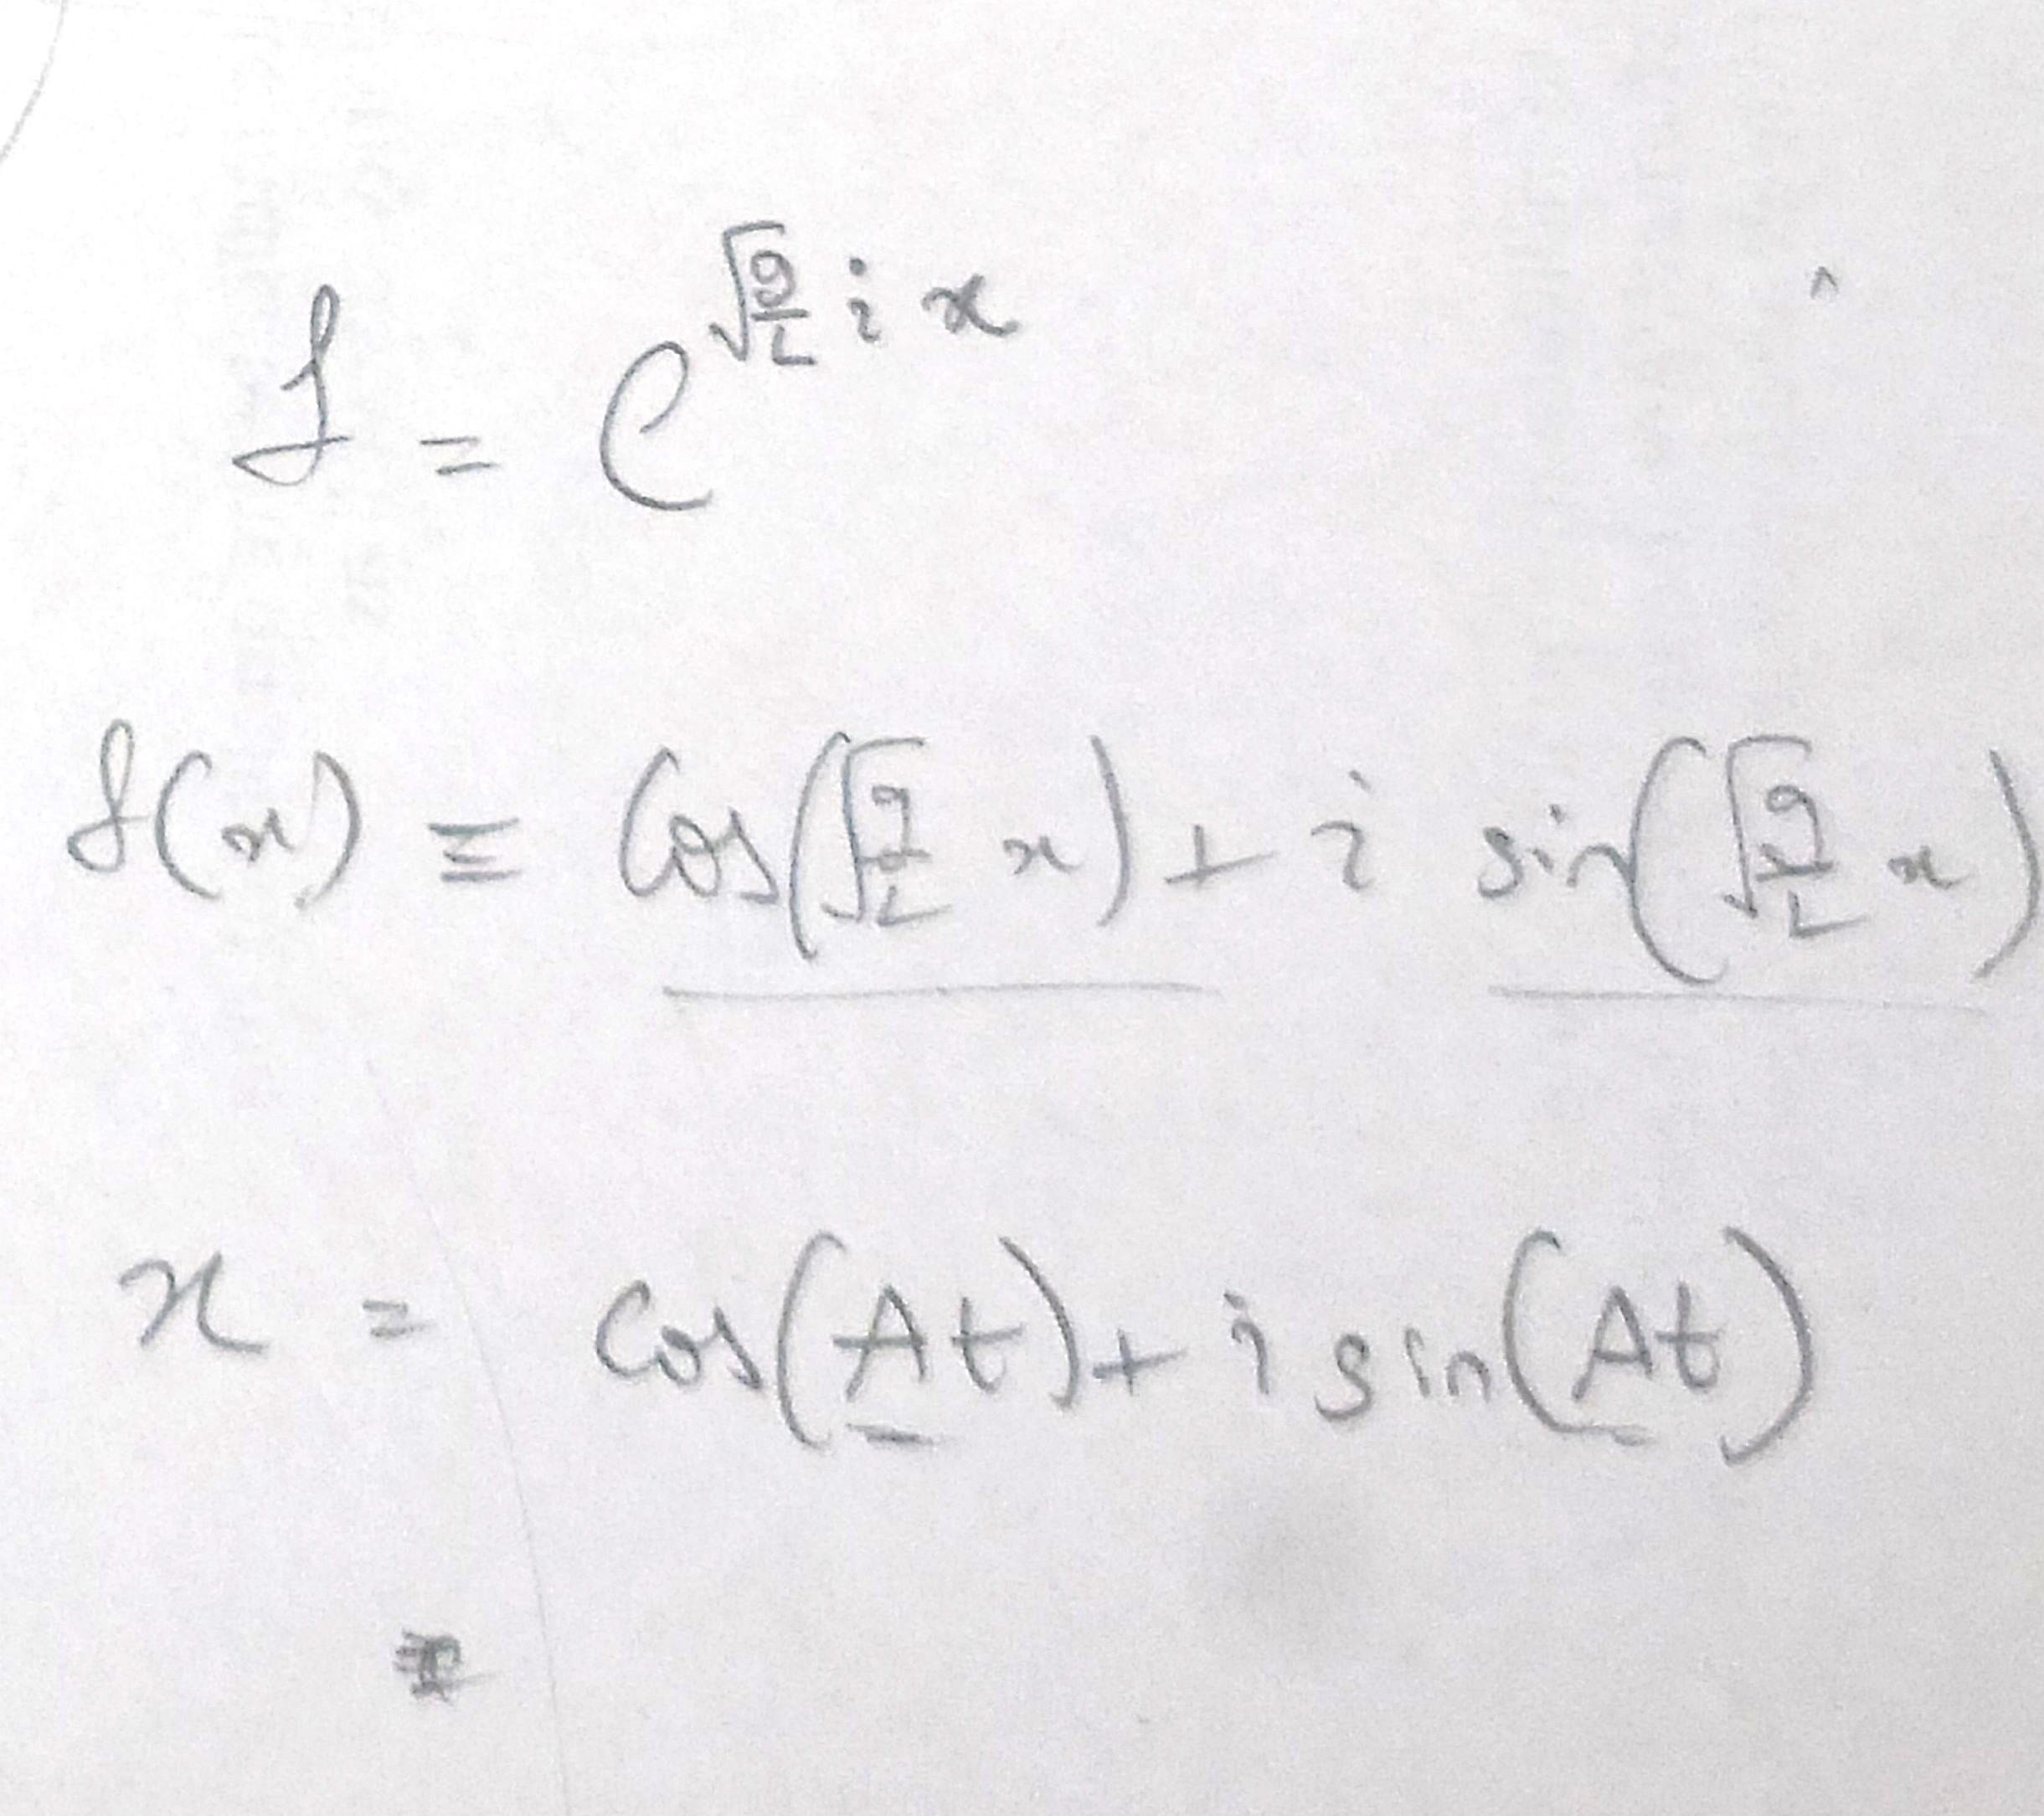 f = e^{√(g/L) i x}
f(x) ≡ Cos(√(g/L) x) + i sin(√(g/L) x)
x = Cos(At) + i sin(At)